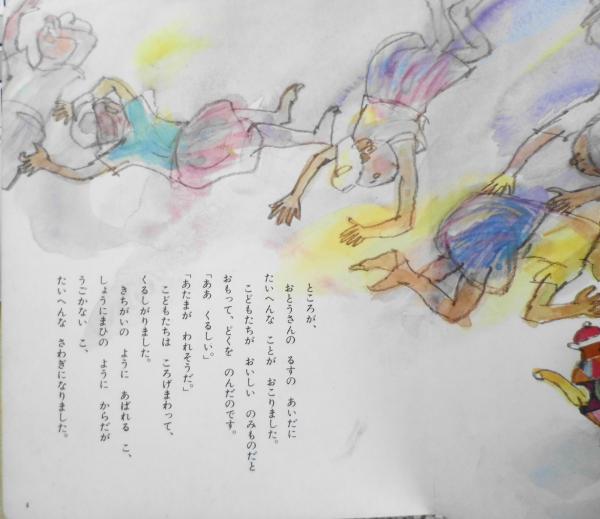 ところが、
おとうさんの るすの あいだに
たいへんな ことが おこりました。
こどもたちが おいしい のみものだと
おもって、どくを のんだのです。
「ああ くるしい。」
「あたまが われそうだ。」
こどもたちは ころげまわって、
くるしがりました。
きちがいの ように あばれる こ、
しょうにまひの ように からだが
うごかない こ、
たいへんな さわぎになりました。